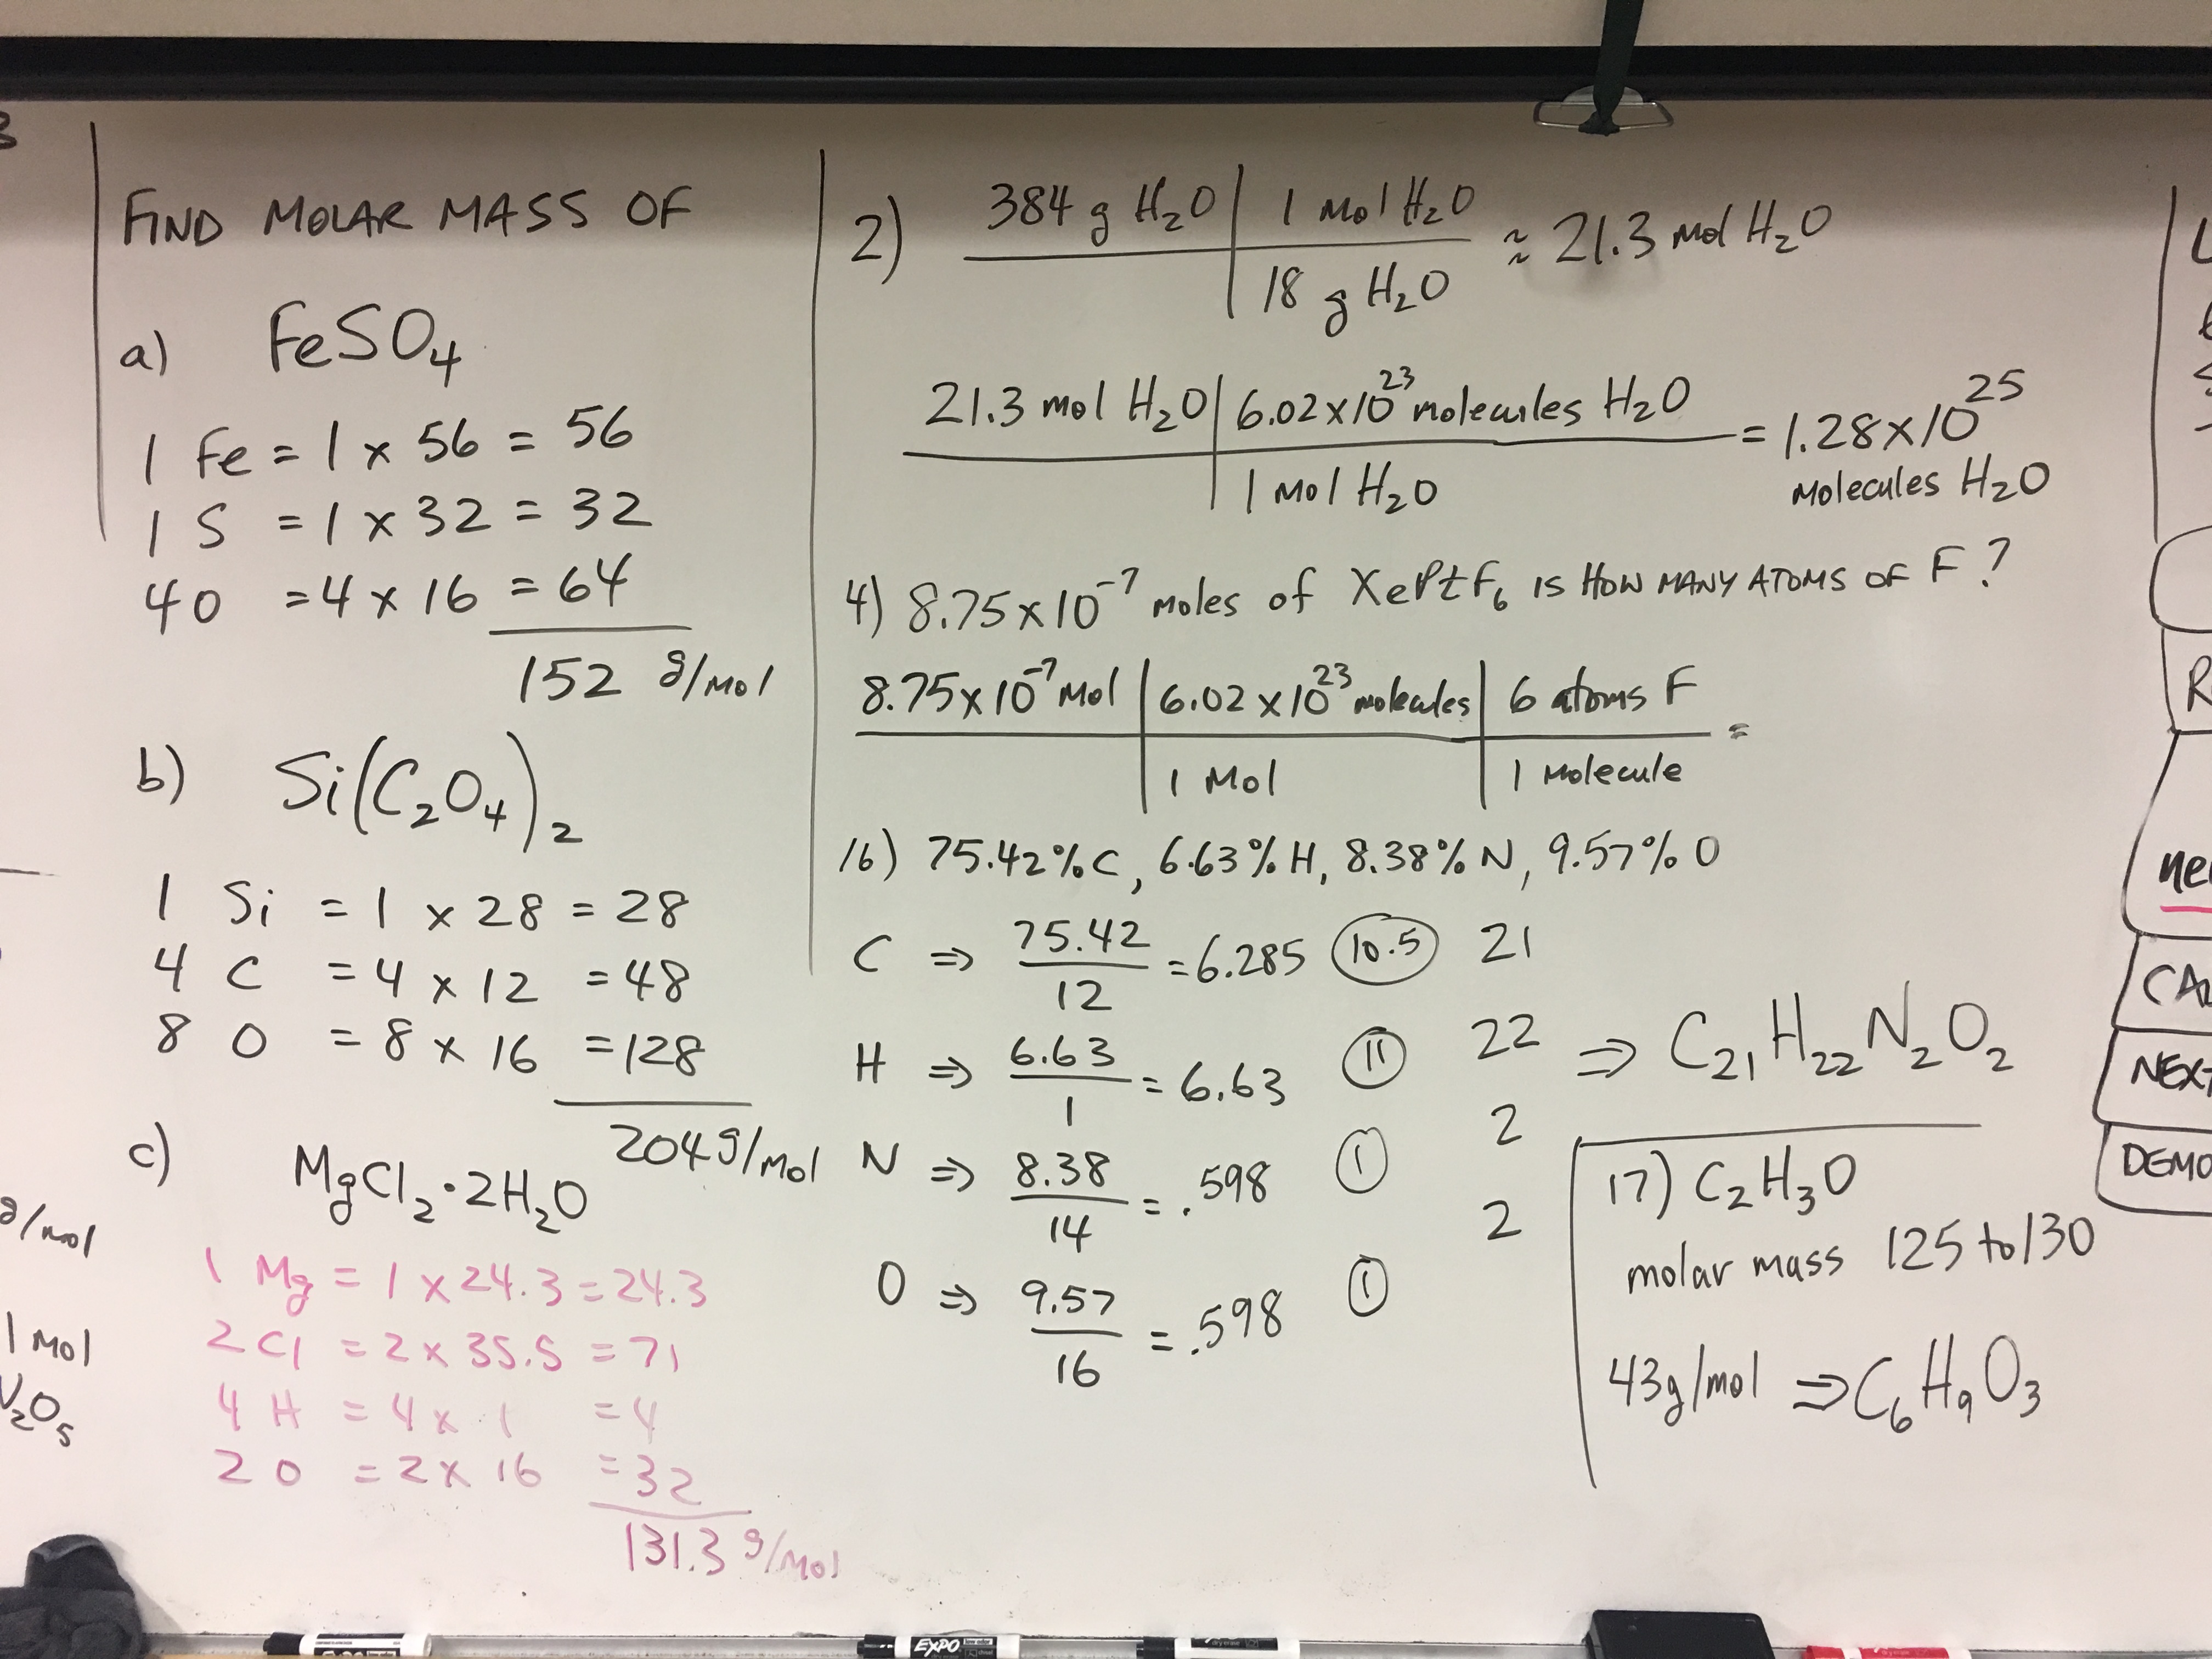 3
g/mol
1 Mol
V₂O₅
FIND MOLAR MASS OF
a) FeSO₄
1 Fe = 1 x 56 = 56
1 S = 1 x 32 = 32
4O = 4 x 16 = 64
152 g/mol
b) Si(C₂O₄)₂
1 Si = 1 x 28 = 28
4 C = 4 x 12 = 48
8 O = 8 x 16 = 128
204 g/mol
c) MgCl₂·2H₂O
1 Mg = 1 x 24.3 = 24.3
2Cl = 2 x 35.5 = 71
4 H = 4 x 1 = 4
2 O = 2 x 16 = 32
131.3 g/mol
2) 384 g H₂O | 1 mol H₂O ≈ 21.3 mol H₂O
18 g H₂O
21.3 mol H₂O | 6.02x10²³ molecules H₂O = 1.28x10²⁵
1 mol H₂O
molecules H₂O
4) 8.75x10⁻⁷ moles of XePtF₆ IS HOW MANY ATOMS OF F?
8.75x10⁻⁷ mol | 6.02x10²³ molecules | 6 atoms F =
1 Mol | 1 molecule
16) 75.42%C, 6.63%H, 8.38%N, 9.57%O
C ⇒ 75.42/12 = 6.285 10.5 21
H ⇒ 6.63/1 = 6.63 11 22
⇒ C₂₁H₂₂N₂O₂
N ⇒ 8.38/14 = .598 1 2
O ⇒ 9.57/16 = .598 1 2
17) C₂H₃O
molar mass 125 to 130
43g/mol ⇒ C₆H₉O₃
R
NEXT
DEMO
EXPO